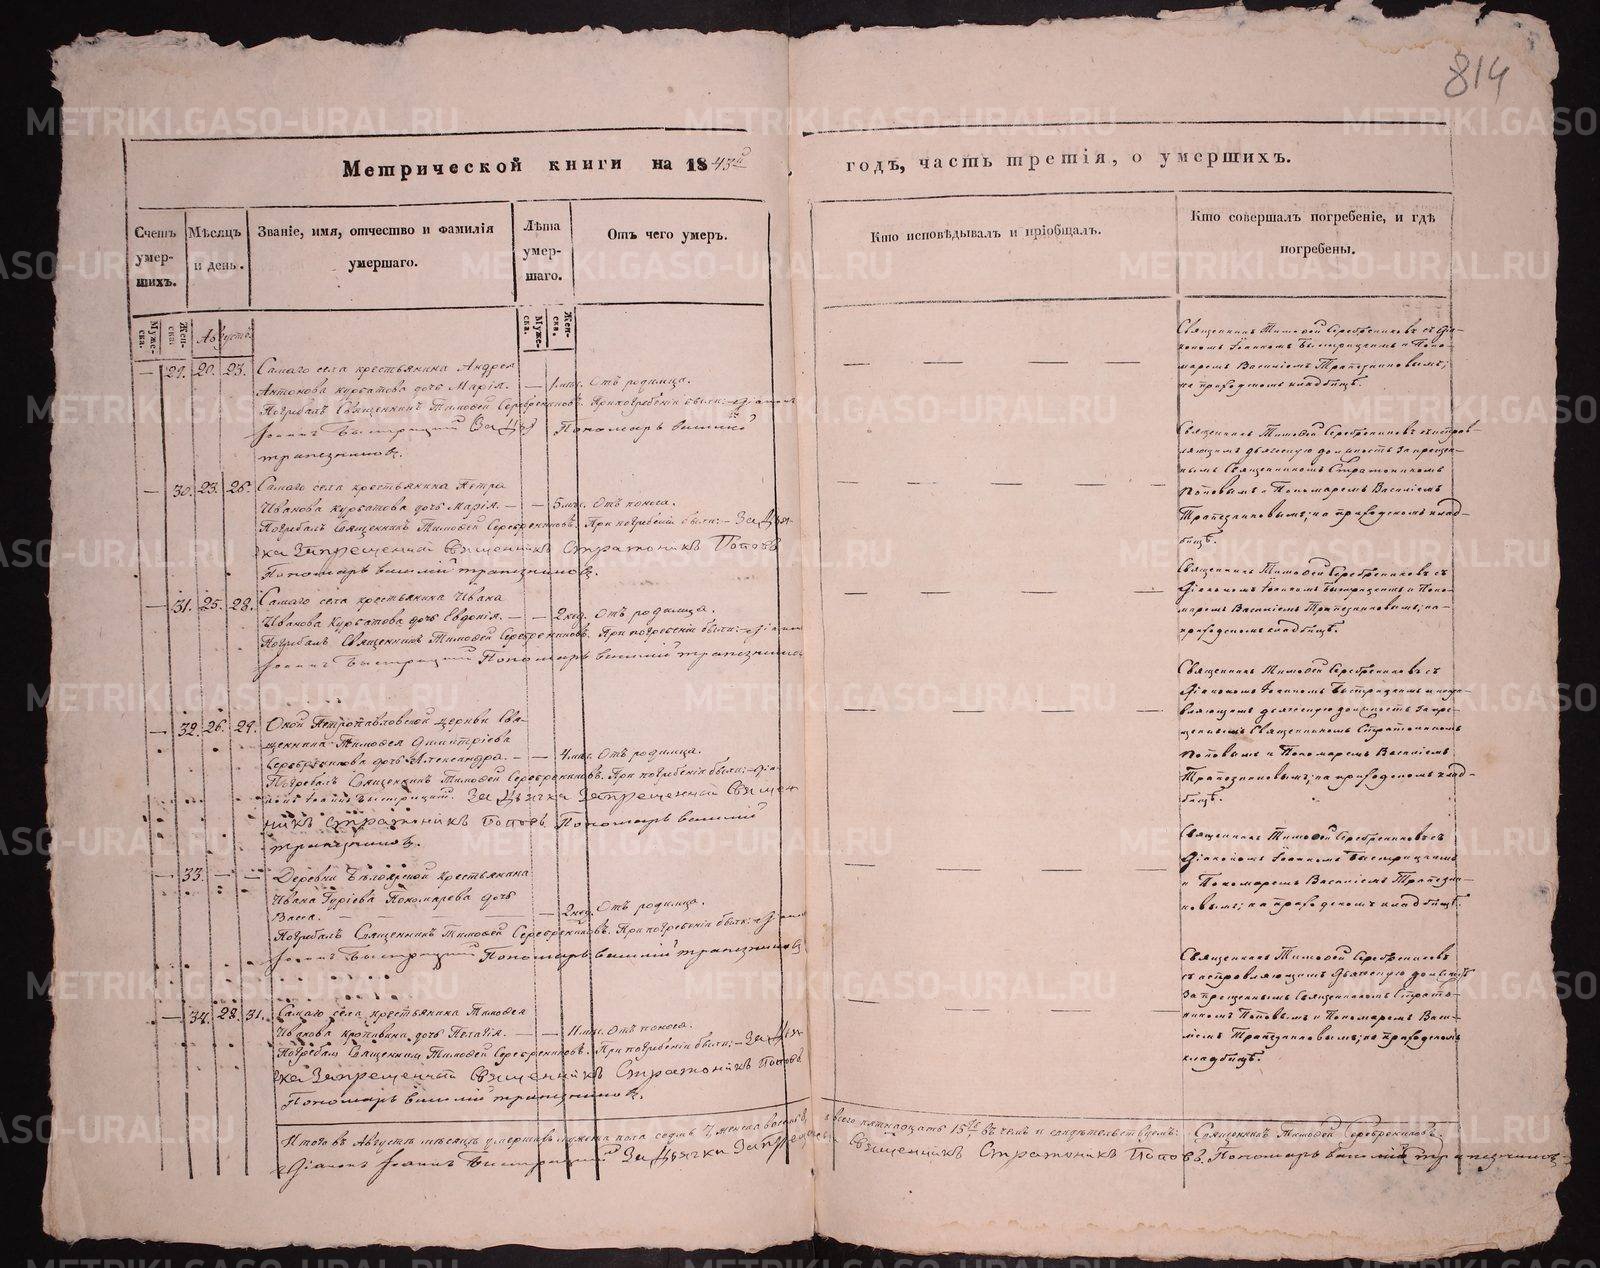 814
Метрической книги на 1843й годъ, часть третія, о умершихъ.
Счетъ умер-шихъ.
Мѣсяцъ и день.
Званіе, имя, отчество и фамилія умершаго.
Лѣта умер-шаго.
Отъ чего умеръ.
Кто исповѣдывалъ и пріобщалъ.
Кто совершалъ погребеніе, и гдѣ погребены.
Муже-ска.
Жен-ска.
Августъ
Муже-ска.
Жен-ска.
— 29. 20. 23. Самаго села крестьянина Андрея
Антонова Курбатова дочь Марія. — 1 мѣс. Отъ родимца.
Погребалъ Священникъ Тимофей Серебренниковъ. При погребеніи были: Діаконъ
Іоаннъ Быстрицкій За Дья Пономарь Василій
трапезниковъ.
Священникъ Тимофей Серебренниковъ съ Діа-
кономъ Іоанномъ Быстрицкимъ и Поно-
маремъ Василіемъ Трапезниковымъ;
на приходскомъ кладбищѣ.
— 30. 23. 26. Самаго села крестьянина Петра
Иванова Курбатова дочь Марія. — — 5 мѣс. Отъ поноса.
Погребалъ Священникъ Тимофей Серебренниковъ. При погребеніи были: — За Дья-
чка Запрещенный Священникъ Стратоникъ Поповъ
Пономарь Василій трапезниковъ.
Священникъ Тимофей Серебренниковъ съ исправ-
ляющимъ дьяческую должность запрещен-
нымъ Священникомъ Стратоникомъ
Поповымъ и Пономаремъ Василіемъ
Трапезниковымъ; на приходскомъ клад-
бищѣ.
— 31. 25. 28. Самаго села крестьянина Ивана
Иванова Курбатова дочь Евдокія. — — 2 нед. Отъ родимца.
Погребалъ Священникъ Тимофей Серебренниковъ. При погребеніи были: — Діаконъ
Іоаннъ Быстрицкій Пономарь Василій трапезниковъ
Священникъ Тимофей Серебренниковъ съ
Діакономъ Іоанномъ Быстрицкимъ и Поно-
маремъ Василіемъ Трапезниковымъ; на
приходскомъ кладбищѣ.
— 32. 26. 29. Петропавловской церкви Свя-
щенника Тимофея Димитріева
Серебренникова дочь Александра. — — 4 мѣс. Отъ родимца.
Погребалъ Священникъ Тимофей Серебренниковъ. При погребеніи были: — Діа-
конъ Іоаннъ Быстрицкій. За Дьячка Запрещенный Священ
никъ Стратоникъ Поповъ Пономарь Василій
трапезниковъ.
Священникъ Тимофей Серебренниковъ съ
Діакономъ Іоанномъ Быстрицкимъ и испра-
вляющимъ дьяческую должность запре-
щеннымъ Священникомъ Стратоникомъ
Поповымъ и Пономаремъ Василіемъ
Трапезниковымъ; на приходскомъ клад-
бищѣ.
— 33. — — Деревни Бѣлоярской крестьянина
Ивана Гуріева Пономарева дочь
Васса. — — — 2 нед. Отъ родимца.
Погребалъ Священникъ Тимофей Серебренниковъ. При погребеніи были: Діаконъ
Іоаннъ Быстрицкій Пономарь Василій трапезниковъ
Священникъ Тимофей Серебренниковъ съ
Діакономъ Іоанномъ Быстрицкимъ
и Пономаремъ Василіемъ Трапезни-
ковымъ; на приходскомъ кладбищѣ.
— 34. 28. 31. Самаго села крестьянина Тимофея
Иванова дочь Пелагія. — — 11 мѣс. Отъ поноса.
Погребалъ Священникъ Тимофей Серебренниковъ. При погребеніи были: — За Дья
чка Запрещенный Священникъ Стратоникъ Поповъ
Пономарь Василій трапезниковъ.
Священникъ Тимофей Серебренниковъ
съ исправляющимъ дьяческую должность
Запрещеннымъ Священникомъ Страто-
никомъ Поповымъ и Пономаремъ Васи-
ліемъ Трапезниковымъ; на приходскомъ
кладбищѣ.
Итого въ Августѣ мѣсяцѣ умершихъ мужеска пола семь 7, женска восемь 8, а всего пятнадцать 15ть въ чемъ и свидѣтельствуемъ: Священникъ Тимофей Серебренниковъ
Діаконъ Іоаннъ Быстрицкій За Дьячка Запрещенный Священникъ Стратоникъ Поповъ. Пономарь Василій трапезниковъ
METRIKI.GASO-URAL.RU